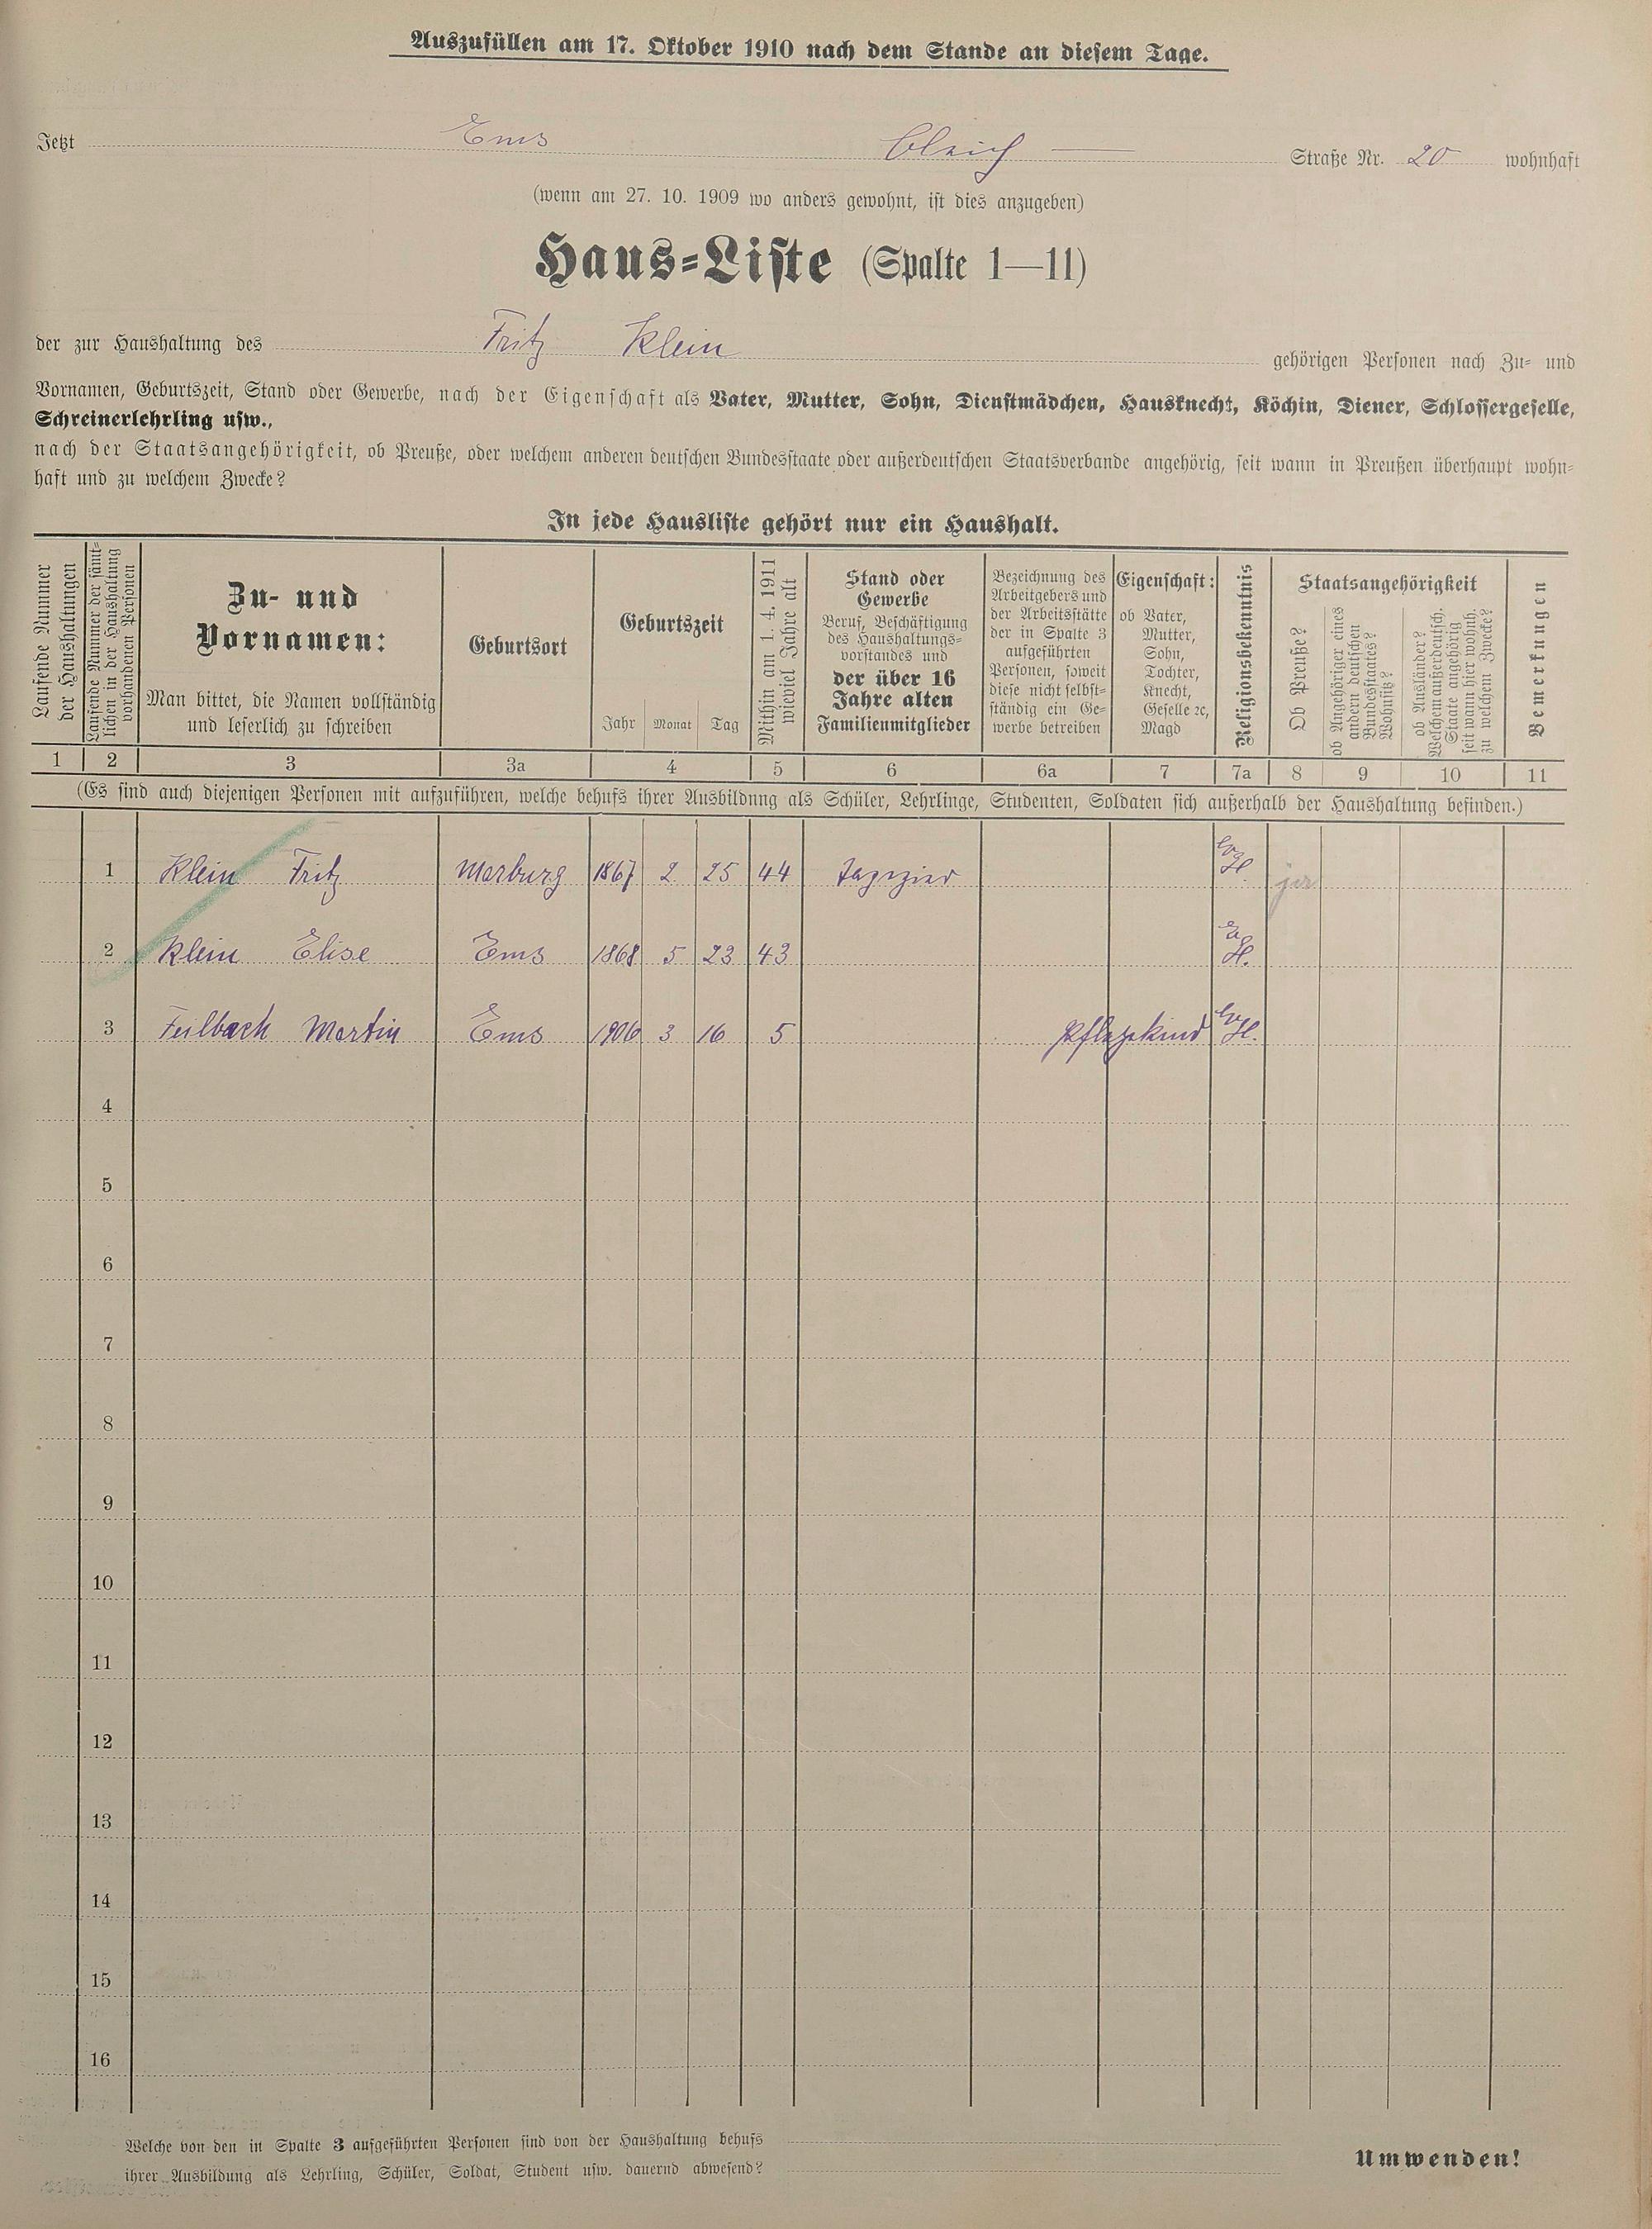 Auszufüllen am 17. Oktober 1910 nach dem Stande an diesem Tage.
Jetzt Ems Bleich — Straße Nr. 20 wohnhaft
(wenn am 27. 10. 1909 wo anders gewohnt, ist dies anzugeben)
Haus-Liste (Spalte 1—11)
der zur Haushaltung des Fritz Klein gehörigen Personen nach Zu- und
Vornamen, Geburtszeit, Stand oder Gewerbe, nach der Eigenschaft als Vater, Mutter, Sohn, Dienstmädchen, Hausknecht, Köchin, Diener, Schlossergeselle,
Schreinerlehrling usw.,
nach der Staatsangehörigkeit, ob Preuße, oder welchem anderen deutschen Bundesstaate oder außerdeutschen Staatsverbande angehörig, seit wann in Preußen überhaupt wohn-
haft und zu welchem Zwecke?
In jede Hausliste gehört nur ein Haushalt.
Laufende Nummer
der Haushaltungen
Laufende Nummer der sämt-
lichen in der Haushaltung
vorhandenen Personen
Zu- und
Vornamen:
Man bittet, die Namen vollständig
und leserlich zu schreiben
Geburtsort
Geburtszeit
Jahr Monat Tag
Mithin am 1. 4. 1911
wieviel Jahre alt
Stand oder
Gewerbe
Beruf, Beschäftigung
des Haushaltungs-
vorstandes und
der über 16
Jahre alten
Familienmitglieder
Bezeichnung des
Arbeitgebers und
der Arbeitsstätte
der in Spalte 3
aufgeführten
Personen, soweit
diese nicht selbst-
ständig ein Ge-
werbe betreiben
Eigenschaft:
ob Vater,
Mutter,
Sohn,
Tochter,
Knecht,
Geselle ꝛc,
Magd
Religionsbekenntnis
Staatsangehörigkeit
Ob Preuße?
ob Angehöriger eines
andern deutschen
Bundesstaates?
Wohnsitz?
ob Ausländer?
Welchem außerdeutsch.
Staate angehörig
seit wann hier wohnh.
zu welchem Zwecke?
Bemerkungen
1 2 3 3a 4 5 6 6a 7 7a 8 9 10 11
(Es sind auch diejenigen Personen mit aufzuführen, welche behufs ihrer Ausbildung als Schüler, Lehrlinge, Studenten, Soldaten sich außerhalb der Haushaltung befinden.)
1 Klein Fritz Marburg 1867 2 25 44 Tapezier ja
2 Klein Elise Ems 1868 5 23 43
3 Feilbach Martin Ems 1906 3 16 5 Pflegekind
4
5
6
7
8
9
10
11
12
13
14
15
16
Welche von den in Spalte 3 aufgeführten Personen sind von der Haushaltung behufs
ihrer Ausbildung als Lehrling, Schüler, Soldat, Student usw. dauernd abwesend?
Umwenden!